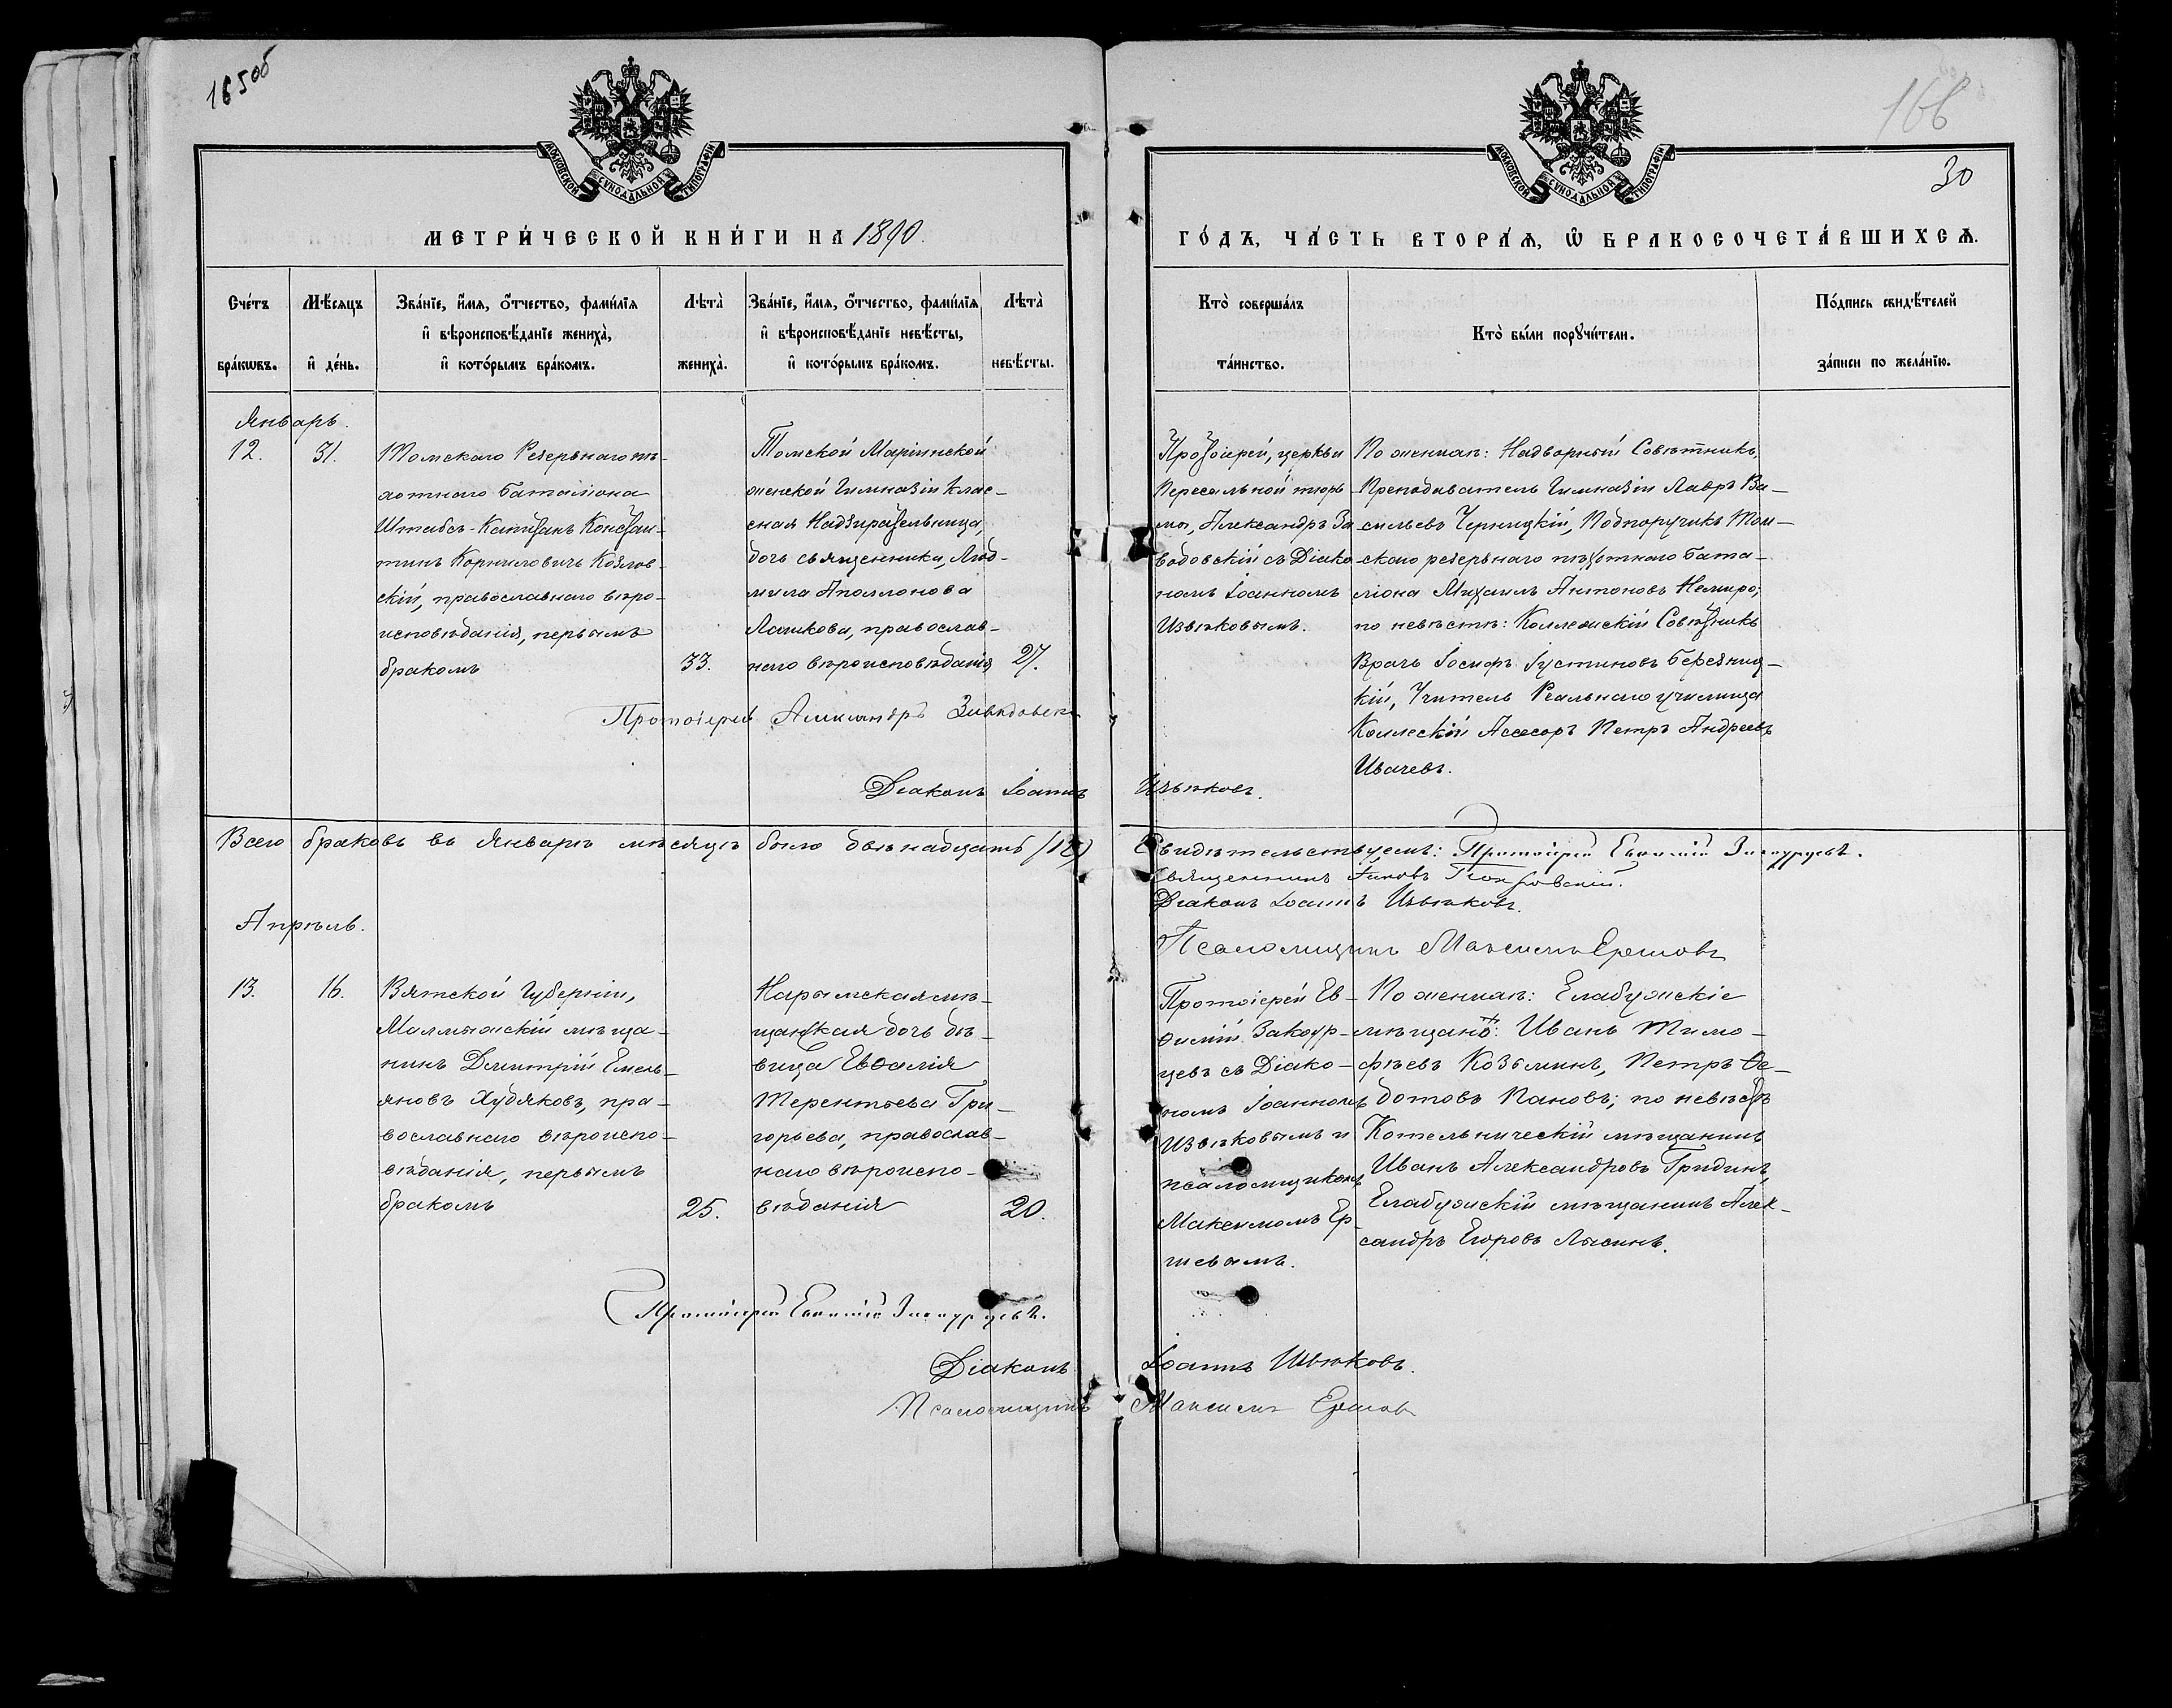 165об
166
30
МОСКОВСКОЙ СѴНОДАЛЬНОЙ ТИПОГРАФІИ
МОСКОВСКОЙ СѴНОДАЛЬНОЙ ТИПОГРАФІИ
МЕТРИ́ЧЕСКОЙ КНИ́ГИ НА 1890.
ГО́ДЪ, ЧА́СТЬ ВТОРА́Я, Ѡ҆ БРАКОСОЧЕТА́ВШИХСѦ.
Сче́тъ
бра́кѡвъ.
Мѣ́сяцъ
и҆ де́нь.
Зва́нїе, и҆́мя, ѻ҆́тчество, фами́лїя
и҆ вѣроисповѣ́данїе жениха̀,
и҆ кото́рымъ бра́комъ.
Лѣта̀
жениха̀.
Зва́нїе, и҆́мя, ѻ҆́тчество, фами́лїя
и҆ вѣроисповѣ́данїе невѣ́сты,
и҆ кото́рымъ бра́комъ.
Лѣта̀
невѣ́сты.
Кто̀ соверша́лъ
та́инство.
Кто̀ бы́ли порꙋчи́тели.
По́дпись свидѣ́телей
за́писи по жела́нїю.
Январь.
12.
31.
Томскаго Резервнаго пѣ-
хотнаго баталіона
Штабсъ-Капитанъ Констан-
тинъ Корниловичъ Козлов-
скій, православнаго вѣро-
исповѣданія, первымъ
бракомъ
33.
Томской Маріинской
женской Гимназіи Клас-
сная Надзирательница,
дочь священника, Люд-
мила Аполлонова
Лашкова, православ-
наго вѣроисповѣданія
27.
Протоіерей, церкви
Пересыльной тюрь
мы, Александръ За
водовскій съ Діако
номъ Іоанномъ
Извѣковымъ.
По женихѣ: Надворный Совѣтникъ,
Преподаватель Гимназіи Лавръ Ва-
сильевъ Черницкій, Подпоручикъ Том-
скаго резервнаго пѣхотнаго бата-
ліона Михаилъ Антоновъ Немиро;
по невѣстѣ: Коллежскій Совѣтникъ
Врачъ Іосифъ Іустиновъ Березниц-
кій, Учитель Реальнаго училища
Коллескій Асесоръ Петръ Андреевъ
Ивачевъ.
Протоіерей Александръ Заводовск
Діаконъ Іоаннъ Извѣковъ.
Всего браковъ въ Январѣ мѣсяцѣ было двѣнадцать (12)
Свидѣтельствуемъ: Протоіерей Евѳимій Закоурцевъ.
Священникъ Іаковъ Покровскій.
Діаконъ Іоаннъ Извѣковъ.
Псаломщикъ Максимъ Ершовъ
Апрѣль.
13.
16.
Вятской Губерніи,
Малмыжскій мѣща-
нинъ Димитрій Емель-
яновъ Худяковъ, пра-
вославнаго вѣроиспо-
вѣданія, первымъ
бракомъ
25.
Нарымская мѣ-
щанская дочь дѣ-
вица Евѳалія
Терентьева Гри-
горьева, православ-
наго вѣроиспо-
вѣданія
20.
Протоіерей Ев-
ѳимій Закоур-
цевъ съ Діако-
номъ Іоанномъ
Извѣковымъ и
псаломщикомъ
Максимомъ Ер-
шевымъ.
По женихѣ: Елабужскіе
мѣщане: Иванъ Тимо-
фѣевъ Козьминъ, Петръ Ѳе-
дотовъ Пановъ; по невѣстѣ
Котельническій мѣщанинъ
Иванъ Александровъ Гридинъ,
Елабужскій мѣщанинъ Алек-
сандръ Егоровъ Лысинъ.
Протоіерей Евѳимій Закоурцевъ.
Діаконъ Іоаннъ Извѣковъ.
Псаломщикъ Максимъ Ершовъ